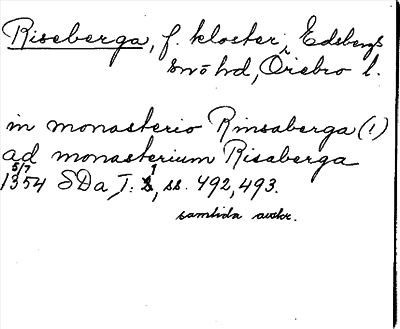 Riseberga, f. kloster i Edsbergs
sn o hd, Örebro l.
in monasterio Rinsaberga (!)
ad monasterium Risaberga
5/7
1354 SDa, T: 1, ss. 492, 493.
samtida avskr.